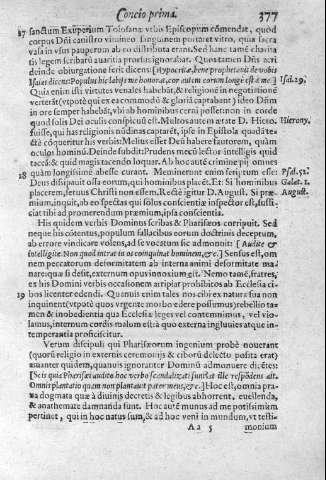 Concio prima. 377
27 sanctum Exuperium Tolosanæ vrbis Episcopum cõmendat, quod
corpus Dñi canistro vimineo sanguinem portaret vitro, quia sacra
vasa in vsus pauperum ab eo distributa erant. Sed hanc tamē charita
tis legem scribarũ auaritia prorsus ignorabat. Quos tamen Dñs acri
deinde obiurgatione ferit dicens: [Hypocritæ, bene prophetauit de vobis
Isaias dicens: Populus hic labijs me honorat, cor autem eorum longe est à me.] Isai. 29.
Quia enim isti virtutes venales habebāt, & religionē in negotiationē
verterāt (vtpotè qui ex ea commodũ & gloriã captabant) ideo Dñm
in ore semper habebāt, vbi ab hominibus cerni posset: non in corde
quod solis Dei oculis conspicuũ est. Multos autem ætate D. Hiero. Hierony.
fuisse, qui has religionis nũdinas captarēt, ipse in Epistola quadã te-
stē cõqueritur his verbis: Melius esset Deũ habere fautorem, quàm
oculos hominũ. Deinde subdit: Prudens meũ lector intelligis quid
taceã: & quid magis tacendo loquar. Ab hoc autē crimine pij omnes
28 quàm longissimè abesse curant. Meminerunt enim scriptum esse: Psal. 52.
Deus dissipauit ossa eorum, qui hominibus placēt. Et: Si hominibus Galat. 1.
placerem, seruus Christi non essem. Rectè igitur D. August. Si præ- August.
mium, inquit, ab eo spectas qui solus conscientiæ inspector est, suffi-
ciat tibi ad promerendum præmium, ipsa conscientia.
His quidem verbis Dominus scribas & Pharisæos corripuit. Sed
neque his contentus, populum fallacibus eorum doctrinis deceptum,
ab errore vindicare volens, ad se vocatum sic admonuit: [Audite &
intelligite. Non quod intrat in os coinquinat hominem, &c.] Sensus est, om
nem peccatorum deformitatem ab interna animi deformitate ma-
nare: quæ si desit, externum opus innoxium git. Nemo tamē, fratres,
ex his Domini verbis occasionem arripiat prohibitos ab Ecclesia ci-
29 bos licenter edendi. Quamuis enim tales nos cibi ex natura sua non
inquinent (vtpotè quos vrgente morbo edere possumus) rebellio ta-
men & inobedientia qua Ecclesiæ leges vel contemnimus, vel vio-
lamus, internum cordis malum est: à quo externa ingluuies atque in-
temperantia proficiscitur.
Verum discipuli qui Pharisæorum ingenium probè nouerant
(quorũ religio in externis ceremonijs & ciborũ delectu posita erat)
amanter quidem, quamuis ignoranter Dominũ admonuere dicētes:
[Scis quia Pharisæi audito hoc verbo scandalizati sunt: at ille respõdens ait.
Omnis plantatio quam non plantauit pater meus, &c.] Hoc est, omnia pra-
ua dogmata quæ à diuinis decretis & legibus abhorrent, euellenda,
& anathemate damnanda sunt. Hoc autē munus ad me potissimum
pertinet, qui in hoc natus sum, & ad hoc veni in mundum, vt testi-
A a 5 monium